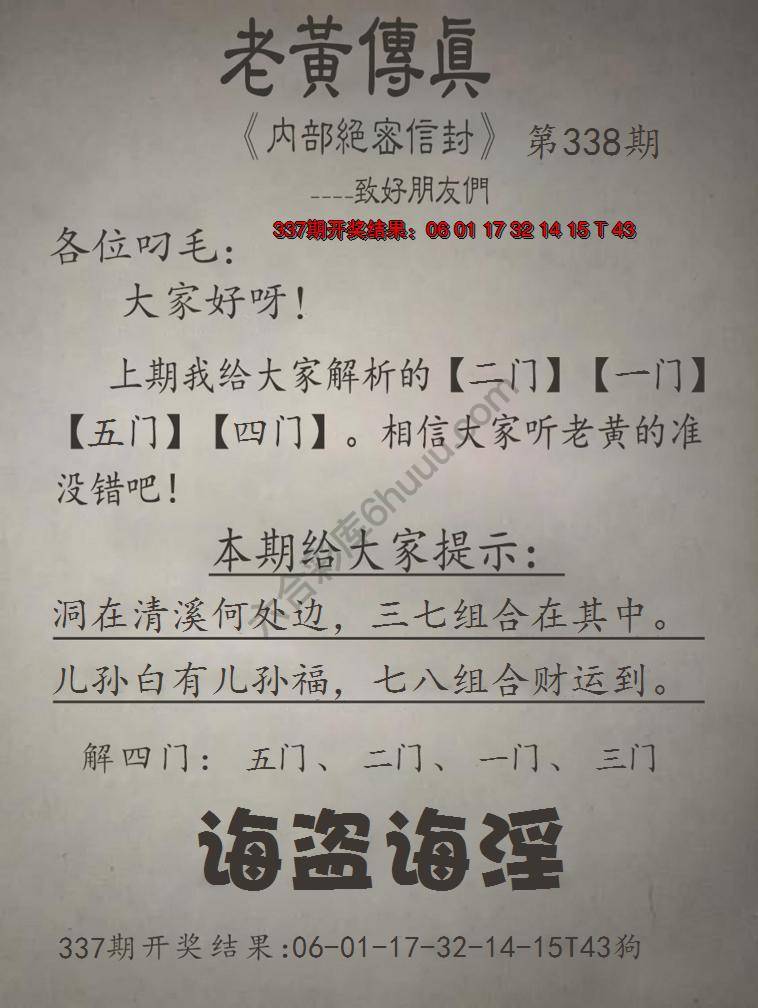 老黃傳眞
《内部絕密信封》 第338期
----致好朋友們
337期开奖结果：06 01 17 32 14 15 T 43
各位叼毛：
大家好呀！
上期我给大家解析的【二门】【一门】
【五门】【四门】。相信大家听老黄的准
没错吧！
本期给大家提示：
洞在清溪何处边，三七组合在其中。
儿孙白有儿孙福，七八组合财运到。
解四门：五门、二门、一门、三门
诲盗诲淫
337期开奖结果:06-01-17-32-14-15T43狗
六合彩库6huuu.com